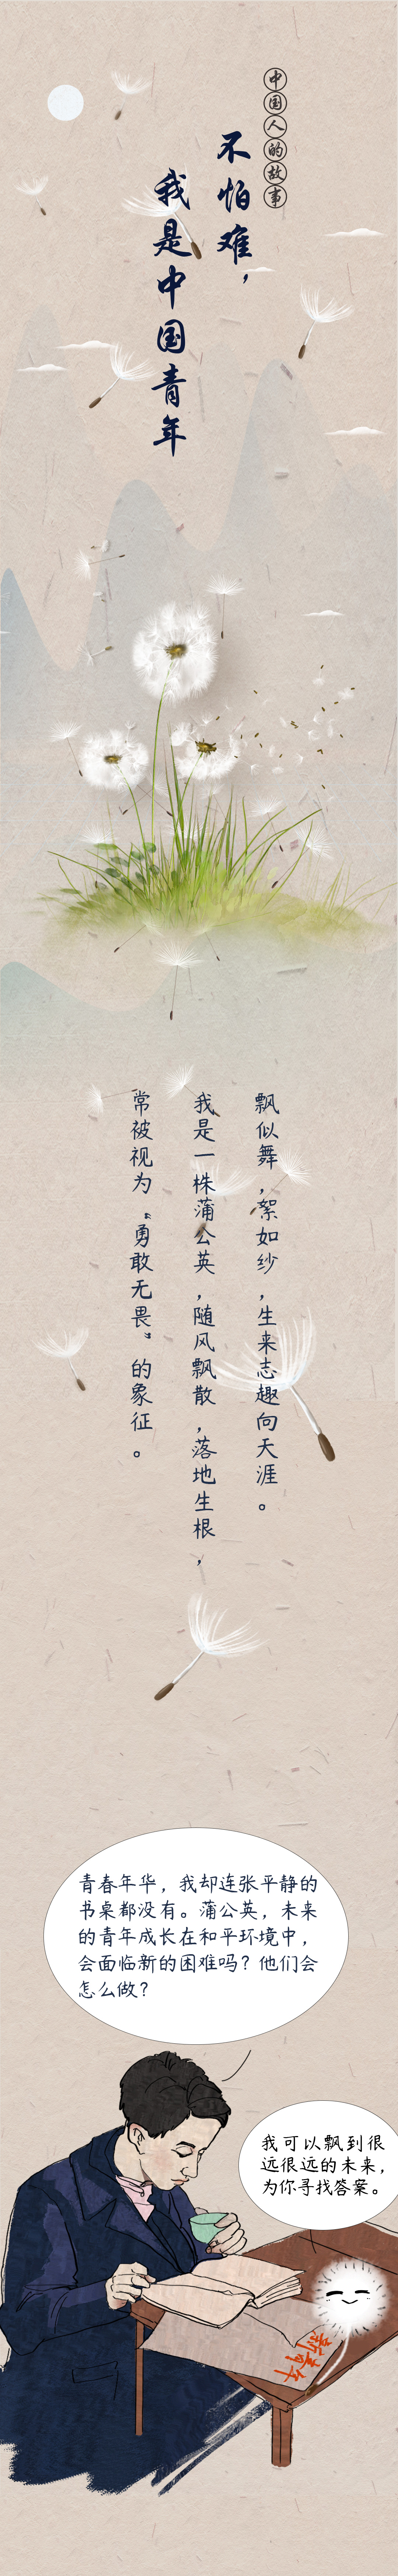 中国人的故事
不怕难，
我是中国青年
飘似舞，絮如纱，生来志趣向天涯。
我是一株蒲公英，随风飘散，落地生根，
常被视为“勇敢无畏”的象征。
青春年华，我却连张平静的
书桌都没有。蒲公英，未来
的青年成长在和平环境中，
会面临新的困难吗？他们会
怎么做？
我可以飘到很
远很远的未来，
为你寻找答案。
新青年